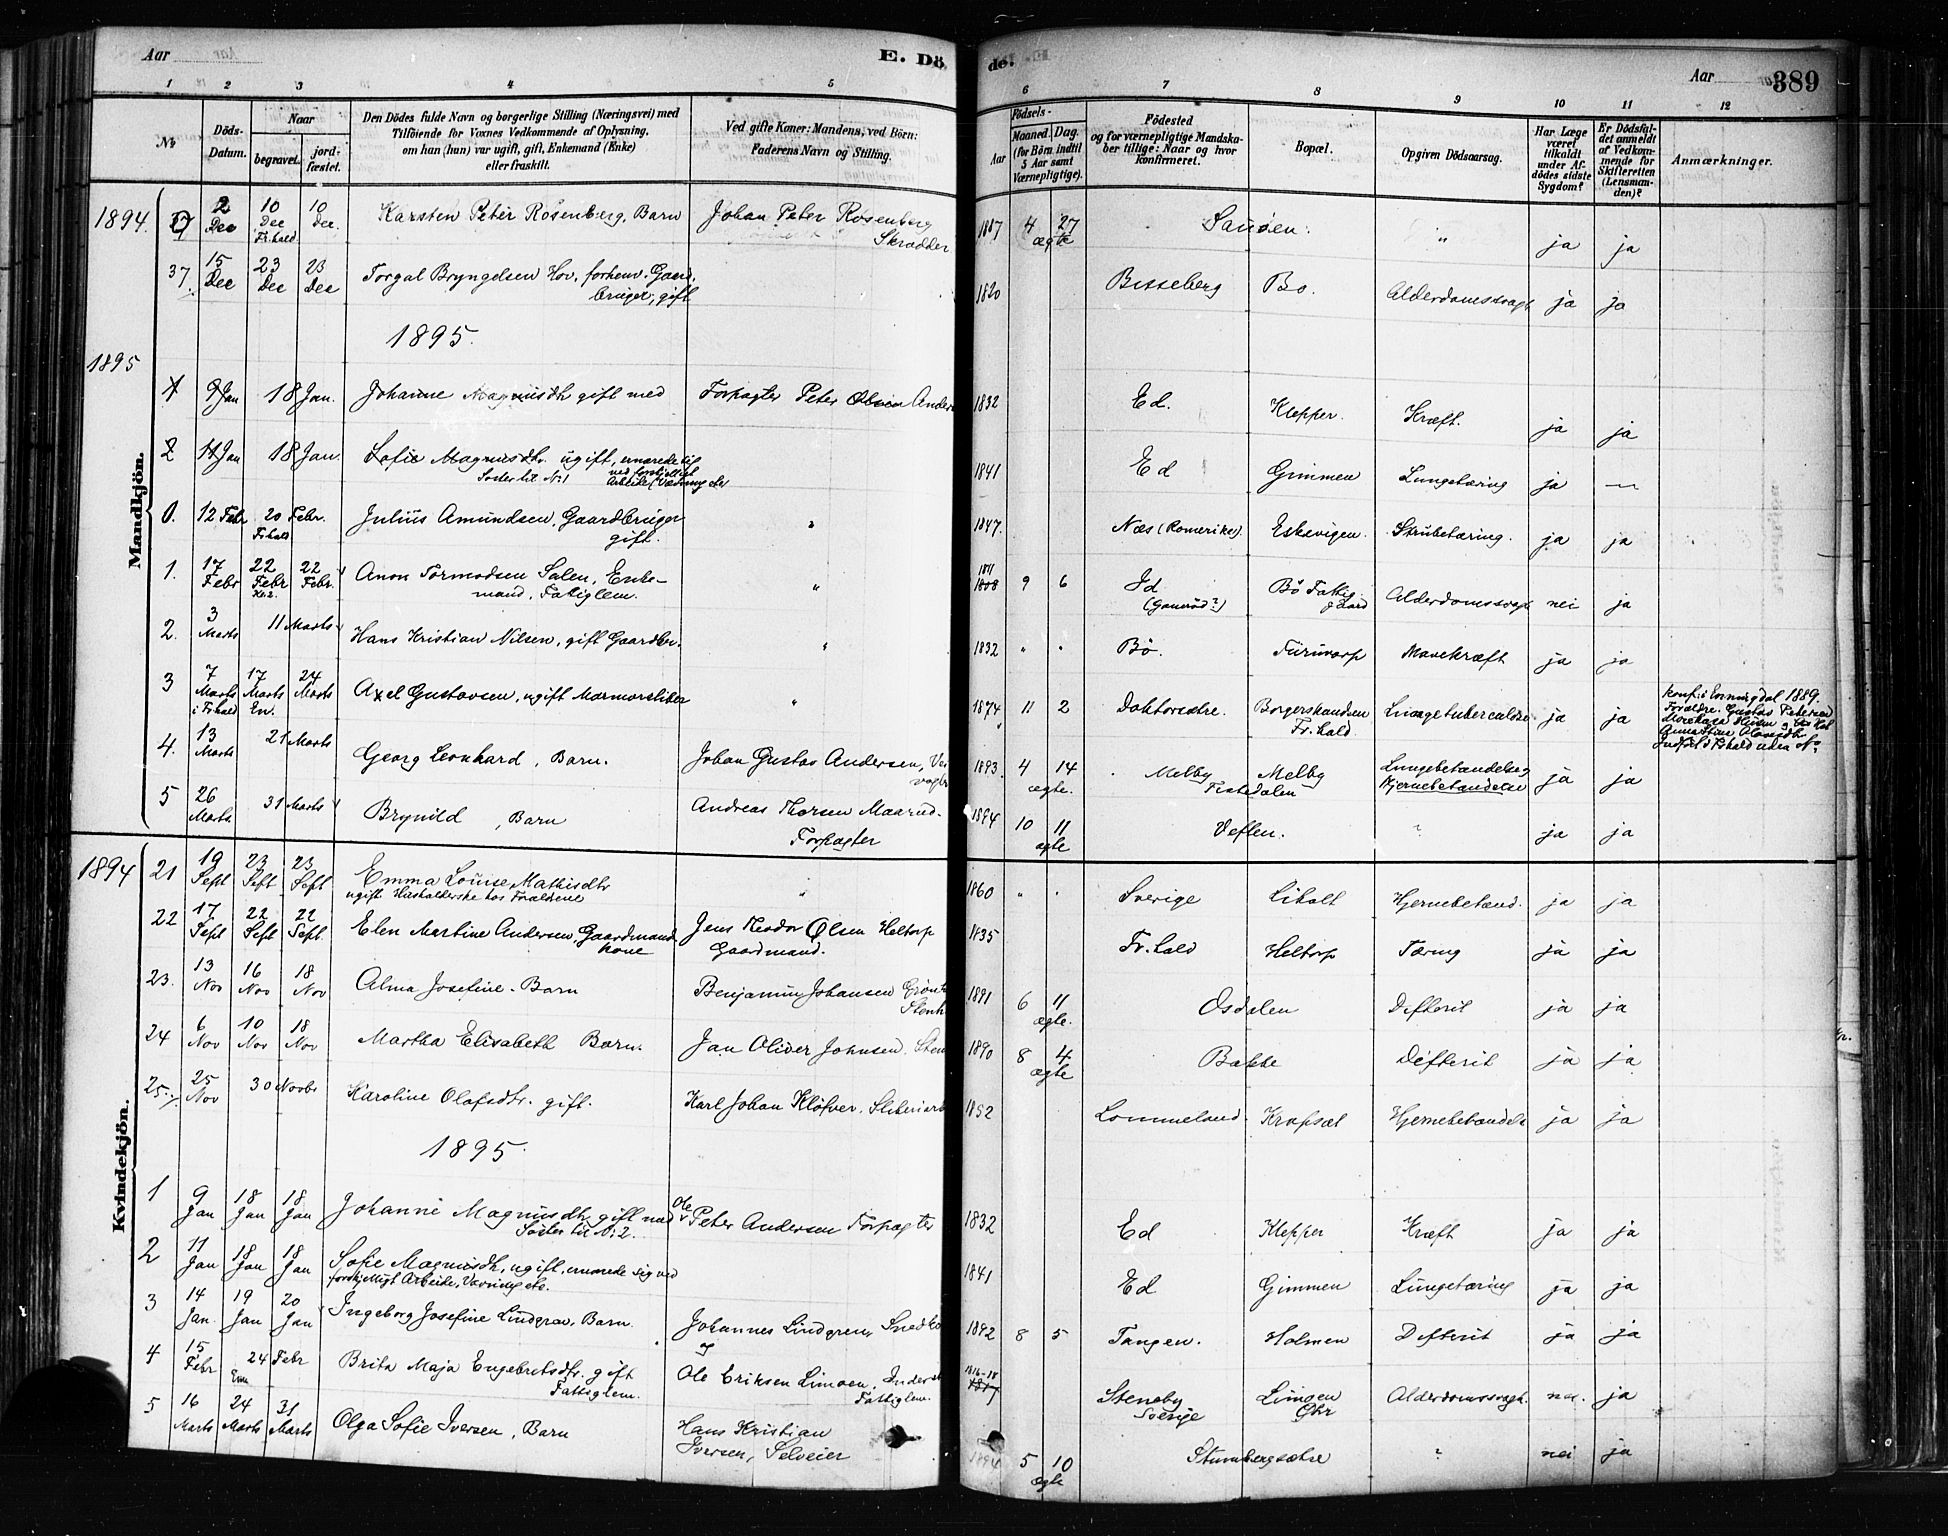 Aar
E. Dö
de.
Aar
389
1 2 3 4 5 6 7 8 9 10 11 12
No
Döds-Datum.
Naar
begravet.
jord-fæstet.
Den Dödes fulde Navn og borgerlige Stilling (Næringsvei) med
Tilföiende for Voxnes Vedkommende af Oplysning,
om han (hun) var ugift, gift, Enkemand (Enke)
eller fraskilt.
Ved gifte Koner: Mandens, ved Börn:
Faderens Navn og Stilling.
Födsels-
Aar
Maaned. Dag.
(for Börn indtil
5 Aar samt
Værnepligtige).
Födested
og for værnepligtige Mandska-
ber tillige: Naar og hvor
konfirmeret.
Bopæl.
Opgiven Dödsaarsag.
Har Læge
været
tilkaldt
under Af-
dödes sidste
Sygdom?
Er Dödsfal-
det anmeldt
af Vedkom-
mende for
Skifteretten
(Lensman-
den)?
Anmærkninger.
Mandkjön.
1894. 2 Dec 10 Dec Fr.hald 10 Dec. Karsten Peter Rosenberg, Barn Johan Peter Rosenberg Skrædder 1887 4 27 ægte Sauöen. " ja ja
37. 15 Dec 23 Dec 23 Dec Torgal Bryngelsen Hov, forhenv. Gaardbruger, gift 1820 Bisseberg Bö. Alderdomssvagh ja ja
1895.
1895
1 9 Jan 18 Jan. Johanne Magnusdtr gift med Forpagter Peter Olsen Anders 1832 Ed. Klepper. Kræft. ja ja
2 11 Jan 18 Jan. Sofie Magnusdtr. ugift, ernærede sig
ved forskjelligt
Söster til No 1 Arbeide (Vævning etc) 1841 Ed Grimmen Lungetæring ja —
0. 12 Febr 20 Febr. Fr.hald Julius Amundsen, Gaardbruger gift. " 1847. Næs (Romerike). Eskevigen. Strubetæring. ja ja
1. 17 Febr 22 Febr Kl.2. 22 Febr. Anon Tormodsen Salen, Enke-
mand, Fattiglem. " 1811 1808 9 6 Id Bö Fattiggaard Alderdomssvagh nei ja
2. 3 Marts 11 Marts Hans Kristian Nilsen, gift Gaardbr. " 1832 " " Bö. Furuvarp Mavekræft ja ja
3 7 Marts i Fr.hald 17 Marts En. 24 Marts Axel Gustavsen, ugift Marmorsliber " 1874 11 2 Doktorsætre. Borgerskandsen Fr.hald Lungetuberculose ja ja
konf. i Enningdal 1889.
Forældre. Gustav Petersen
4. 13 Marts 21 Marts Georg Leonhard, Barn. Johan Gustav Andersen, 1893. 4 14 ægte. Melby Melby Tistedalen Lungebetændelse, Hjernebetændelse ja ja
5 26 Marts 31 Marts Brynild, Barn Andreas Thorsen Maarud. Forpagter 1894 10 11 ægte Veften. ? ja ja
Kvindekjön.
1894 21 19 Sept 23 Sept 23 Sept Emma Louise Mathisdtr
ugift Husholderske hos Forældrene " 1860 " " Sverige Liholt Hjernebetænd. ja ja
22 17 Sept 22 Sept 22 Sept. Elen Martine Andersen, Gaardmands kone Jens Theodor Olsen Heltorp Gaardmand. 1835 Fr.hald Heltorp Tæring ja ja
23. 13 Nov 16 Nov 18 Nov Alma Josefine. Barn Benjamin Johansen 1891 6 11 ægte. Osdalen Difterit ja ja
24 6 Nov 10 Nov 18 Nov Martha Elisabeth Barn. Jan Oliver Johnsen. 1890 8 4 ægte Bakke Difterit ja ja
25. 25 Nov 30 Novbr Karoline Olafsdtr. gift. Karl Johan Klöfver, Sliberiarb 1852 Lommeland. Krapsæt Hjernebetændels ja ja
1895.
1 9 Jan 18 Jan 18 Jan Johanne Magnusdtr gift med Ole Peter Andersen Forpagter
Söster til No 2. 1832 Ed Klepper Kræft ja ja
2 11 Jan 18 Jan 18 Jan Sofie Magnusdtr, ugift, ernærede sig ved
forskjelligt Arbeide, Vævning etc. 1841 Ed Grimmen Lungetæring ja ja
3 14 Jan. 19 Jan 20 Jan Ingeborg Josefine Lindgren, Barn. Johannes Lindgren, Snedker 1892 8 5 Tangen. Holmen Difterit ja ja
4 15 Febr 24 Febr Brita Maja Engebretsdtr. gift Fattiglem. Ole Eriksen Limoen, Fattiglem. 1816-18 1817 Steneby Sverige Limoen Alderdomssvagh. nei. ja
5 16 Marts 24 Marts 31 Marts Olga Sofie Iversen, Barn Hans Kristian Iversen, Selveier 1894 5 10 ægte Stumbergsætre ? nei ja